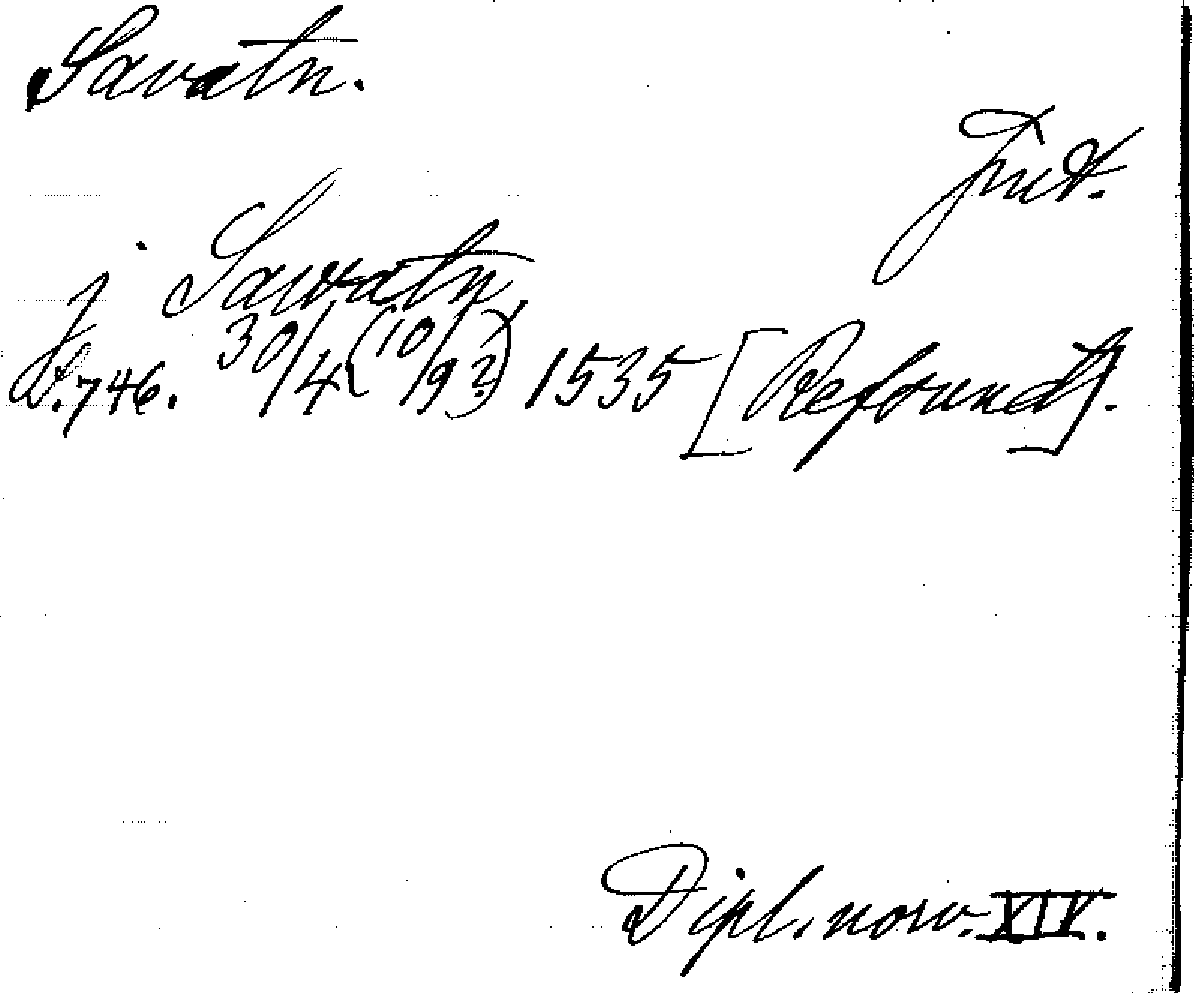 Savatn.
Finst.
j Sawatn,
S. 746. 30/4 (10/9?) 1535 [Refsund].
Dipl. norv. XIV.